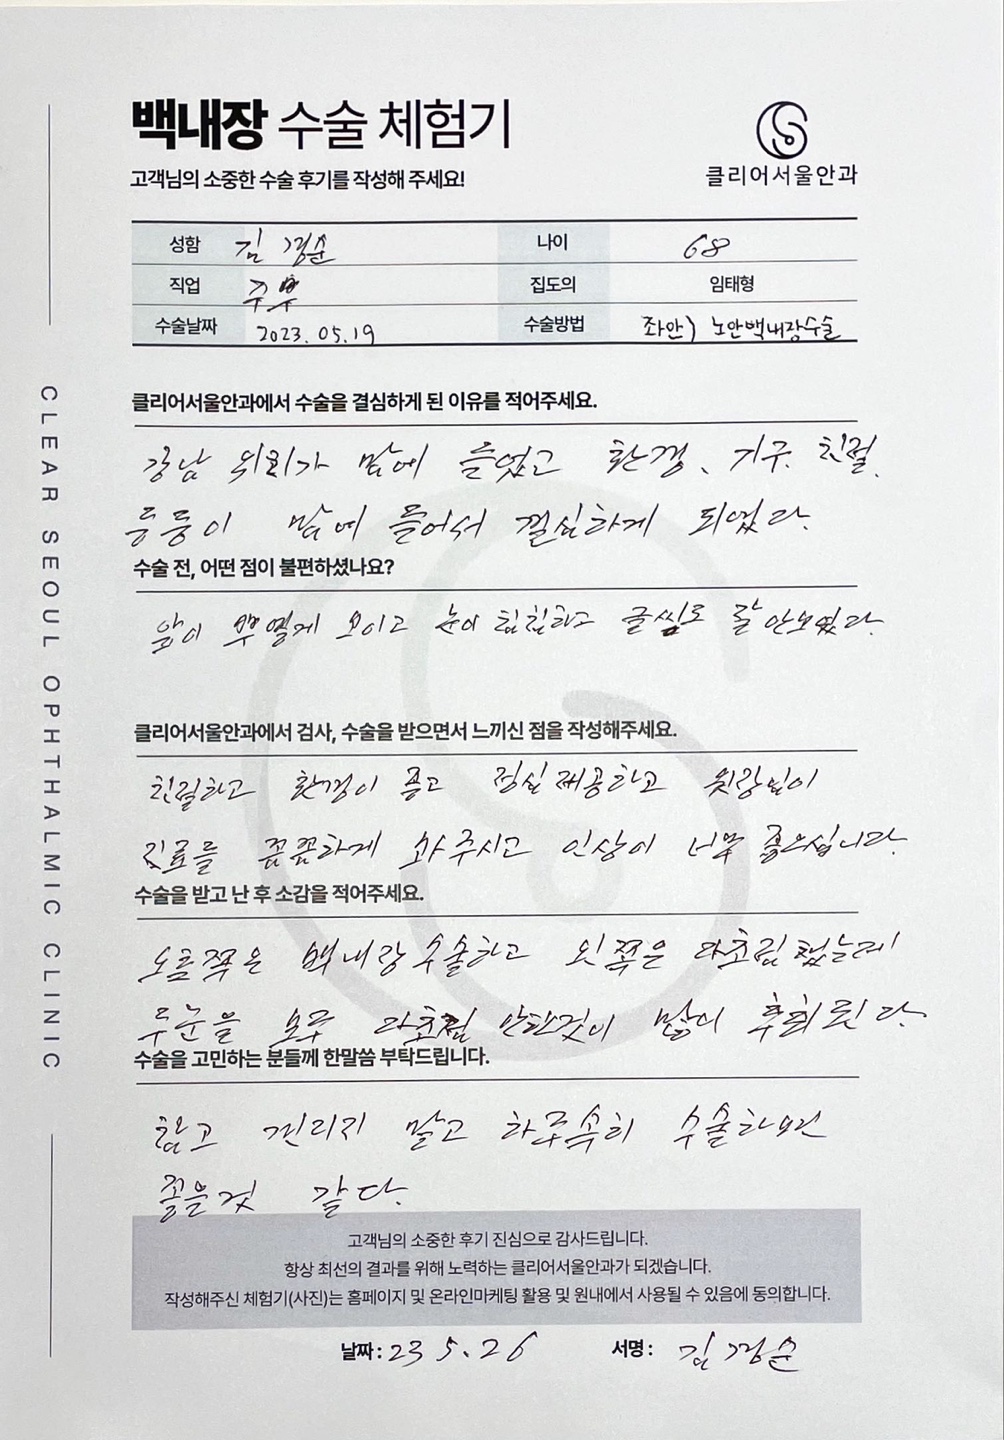 백내장 수술 체험기
고객님의 소중한 수술 후기를 작성해 주세요!
클리어서울안과
성함 김경순 나이 68
직업 주부 집도의 임태형
수술날짜 2023. 05. 19 수술방법 좌안) 노안백내장수술
CLEAR SEOUL OPHTHALMIC CLINIC
클리어서울안과에서 수술을 결심하게 된 이유를 적어주세요.
강남 위치가 맘에 들었고 환경, 기구, 친절,
등등이 맘에 들어서 결심하게 되었다.
수술 전, 어떤 점이 불편하셨나요?
앞이 뿌옇게 보이고 눈이 침침하고 글씨도 잘 안보였다.
클리어서울안과에서 검사, 수술을 받으면서 느끼신 점을 작성해주세요.
친절하고 환경이 좋고 점심 제공하고 원장님이
진료를 꼼꼼하게 봐주시고 인상이 너무 좋으십니다.
수술을 받고 난 후 소감을 적어주세요.
오른쪽은 백내장 수술하고 왼쪽은 다초점 했는데
두눈을 모두 다초점 안한것이 많이 후회된다.
수술을 고민하는 분들께 한말씀 부탁드립니다.
참고 견디지 말고 하루속히 수술하면
좋을것 같다.
고객님의 소중한 후기 진심으로 감사드립니다.
항상 최선의 결과를 위해 노력하는 클리어서울안과가 되겠습니다.
작성해주신 체험기(사진)는 홈페이지 및 온라인마케팅 활용 및 원내에서 사용될 수 있음에 동의합니다.
날짜 : 23 5. 26 서명 : 김경순